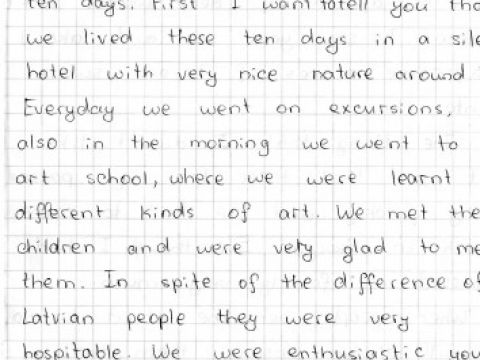 ten days. First I want totell you tha
we lived these ten days in a sile
hotel with very nice nature around
Everyday we went on excursions,
also in the morning we went to
art school, where we were learnt
different kinds of art. We met the
children and were very glad to me
them. In spite of the difference of
Latvian people they were very
hospitable. We were enthusiastic you